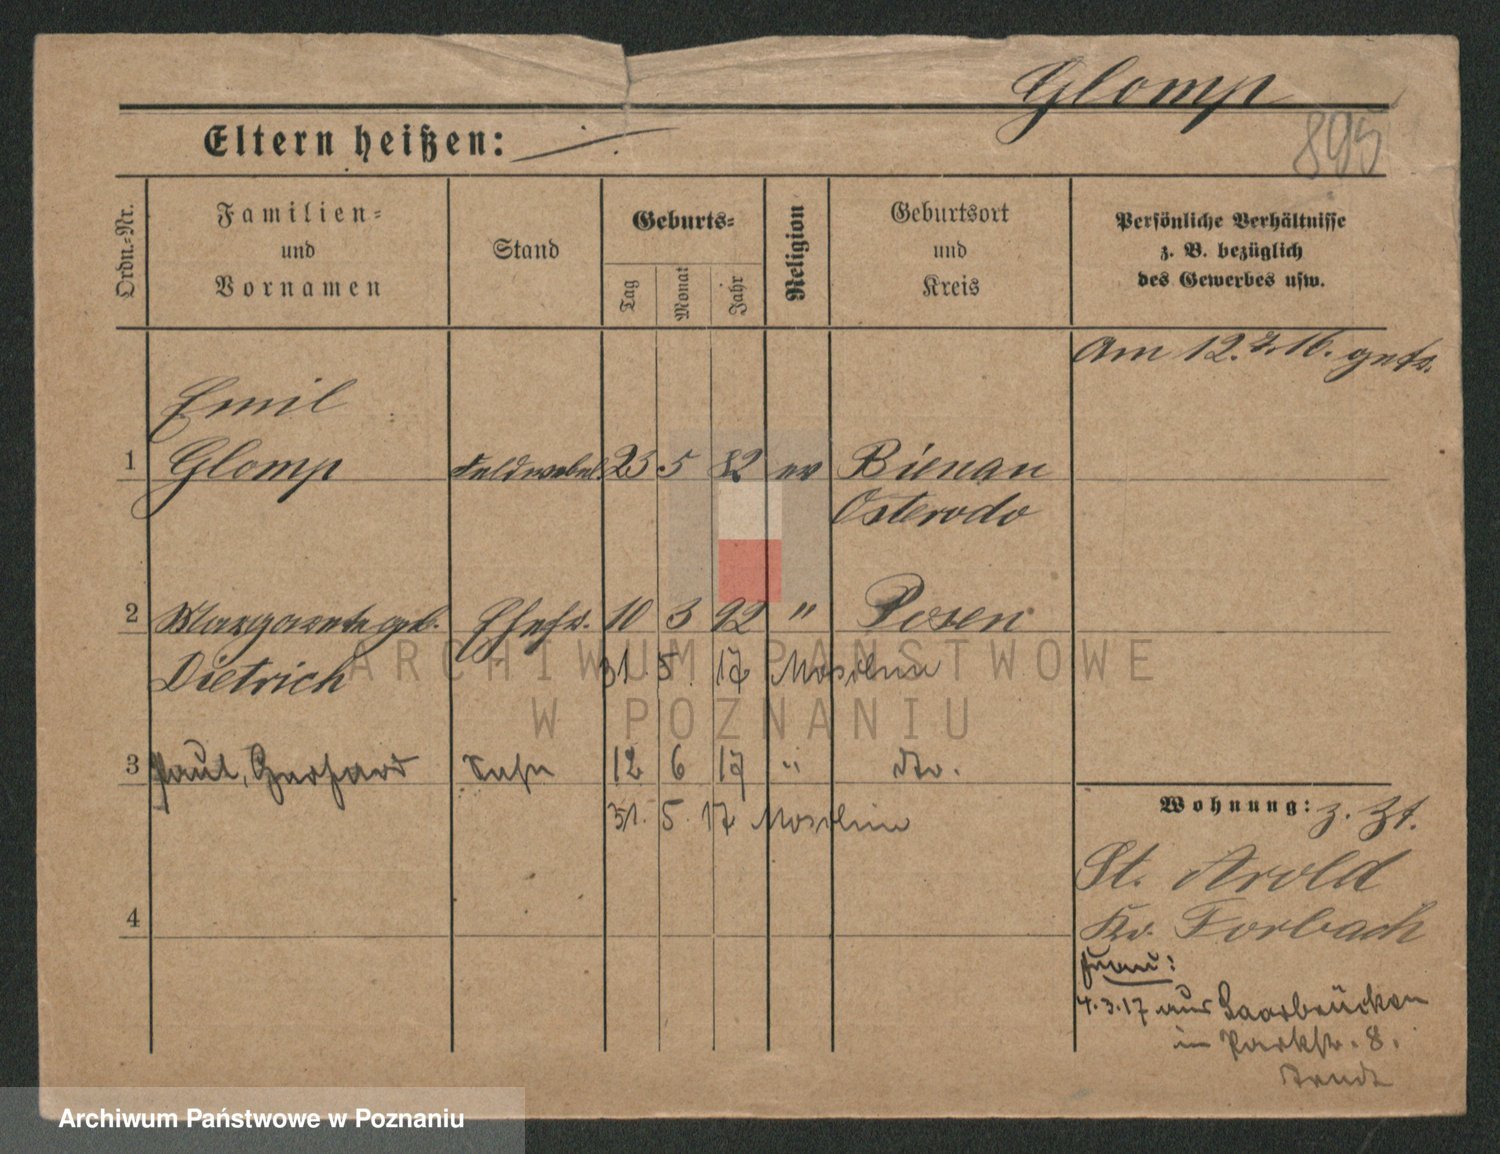 Glomp
895
Eltern heißen:
Ordn.=Nr.
Familien=
und
Vornamen
Stand
Geburts=
Tag
Monat
Jahr
Religion
Geburtsort
und
Kreis
Persönliche Verhältnisse
z. B. bezüglich
des Gewerbes usw.
Am 12. 2. 16. getr.
Emil
1 Glomp Feldwebel 23 5 82 ev Bienau
Osterode
2 Margarete geb. Ehefr. 10 3 92 " Posen
Dietrich 31. 5. 17
3 Paul, Gerhard Sohn 12 6 17 " do.
31. 5. 17
4
Wohnung: z. Zt.
St. Avold
Kr. Forbach
Frau:
4.3.17 aus Saarbrücken
in Parkstr. 8.
Arndt
ARCHIWUM PAŃSTWOWE
W POZNANIU
Archiwum Państwowe w Poznaniu